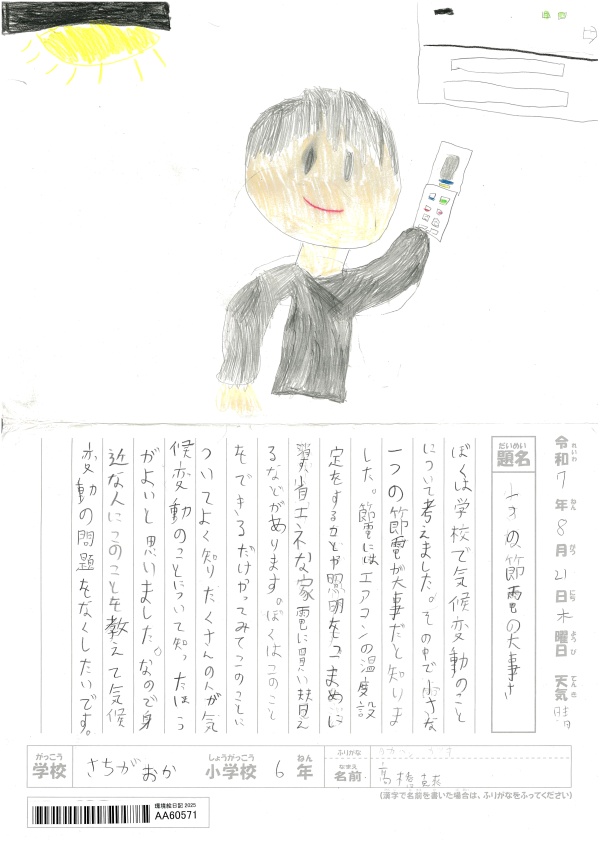 令和7年8月21日木曜日 天気晴
れいわ ねん がつ にち ようび てんき
だいめい
題名
の節電の大事さ
ぼくは学校で気候変動のこと
について考えました。その中で小さな
一つの節電が大事だと知りま
した。節電にはエアコンの温度設
定をするかとや照明をこまめに
消す省エネな家電に買い替え
るなどがあります。ぼくはこのこと
をできるだけかってみてこのことに
ついてよく知りたくさんの人が気
候変動のことについて知ったほう
がよいと思いました。なので身
近な人にこのことを教えて気候
変動の問題をなくしたいです。
がっこう しょうがっこう ねん
学校 さちがおか 小学校 6年
ふりがな
なまえ
名前 高橋
(漢字で名前を書いた場合は、ふりがなをふってください)
環境絵日記 2025
AA60571